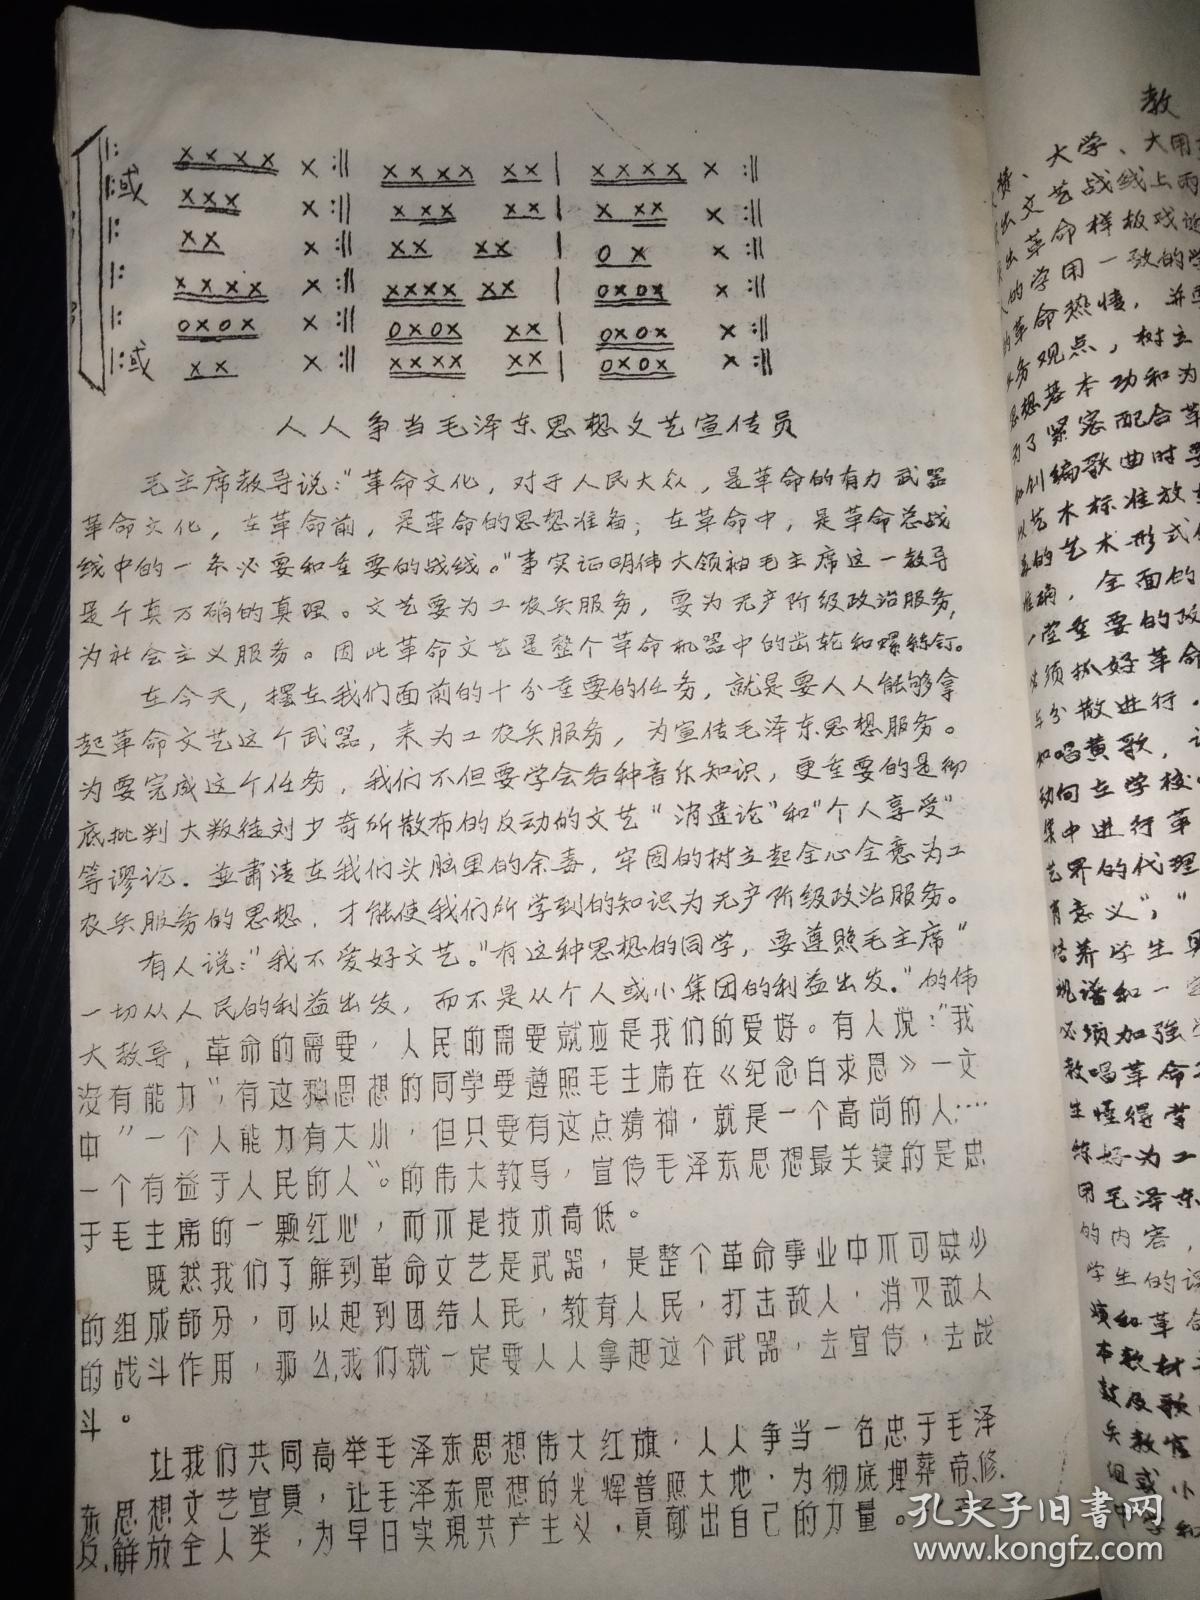 或
或
人人争当毛泽东思想文艺宣传员
毛主席教导说：“革命文化，对于人民大众，是革命的有力武器
革命文化，在革命前，是革命的思想准备；在革命中，是革命总战
线中的一条必要和重要的战线。”事实证明伟大领袖毛主席这一教导
是千真万确的真理。文艺要为工农兵服务，要为无产阶级政治服务，
为社会主义服务。因此革命文艺是整个革命机器中的齿轮和螺丝钉。
在今天，摆在我们面前的十分重要的任务，就是要人人能够拿
起革命文艺这个武器，来为工农兵服务，为宣传毛泽东思想服务。
为要完成这个任务，我们不但要学会各种音乐知识，更重要的是彻
底批判大叛徒刘少奇所散布的反动的文艺“消遣论”和“个人享受”
等谬论．並肃清在我们头脑里的余毒，牢固的树立起全心全意为工
农兵服务的思想．才能使我们所学到的知识为无产阶级政治服务。
有人说：“我不爱好文艺。”有这种思想的同学，要遵照毛主席“
一切从人民的利益出发，而不是从个人或小集团的利益出发．”的伟
大教导，革命的需要，人民的需要就应是我们的爱好。有人说：“我
没有能力”，有这种思想的同学要遵照毛主席在《纪念白求恩》一文
中“一个人能力有大小，但只要有这点精神，就是一个高尚的人……
一个有益于人民的人”。的伟大教导，宣传毛泽东思想最关键的是忠
于毛主席的一颗红心，而不是技术高低。
既然我们了解到革命文艺是武器，是整个革命事业中不可缺少
的组成部分，可以起到团结人民，教育人民，打击敌人，消灭敌人
的战斗作用，那么，我们就一定要人人拿起这个武器，去宣传，去战
斗。
让我们共同高举毛泽东思想伟大红旗，人人争当一名忠于毛泽
东思想文艺宣員，让毛泽东思想的光辉普照大地，为彻底埋葬帝、修、
反，解放全人类，为早日实現共产主义，貢献出自己的力量。
教
大学、大用
出文艺战线上
出革命样板戏
的学用一致的
的革命热情，并
务观点，树立
思想基本功和为
为了紧密配合革
和创编歌曲时要
以艺术标准放
的艺术形式
准确，全面的
堂重要的政
必须抓好革命
与分散进行．
如唱黄歌，
动向在学校
集中进行革
艺界的代理
有意义”，“
培养学生
视谱和一
必须加强
教唆革命
生懂得学
练好为工
用毛泽东
的内容，
学生的课
演和革命
本教材
鼓及歌
兵教官
组或小
中学和
孔夫子旧书网
www.kongfz.com